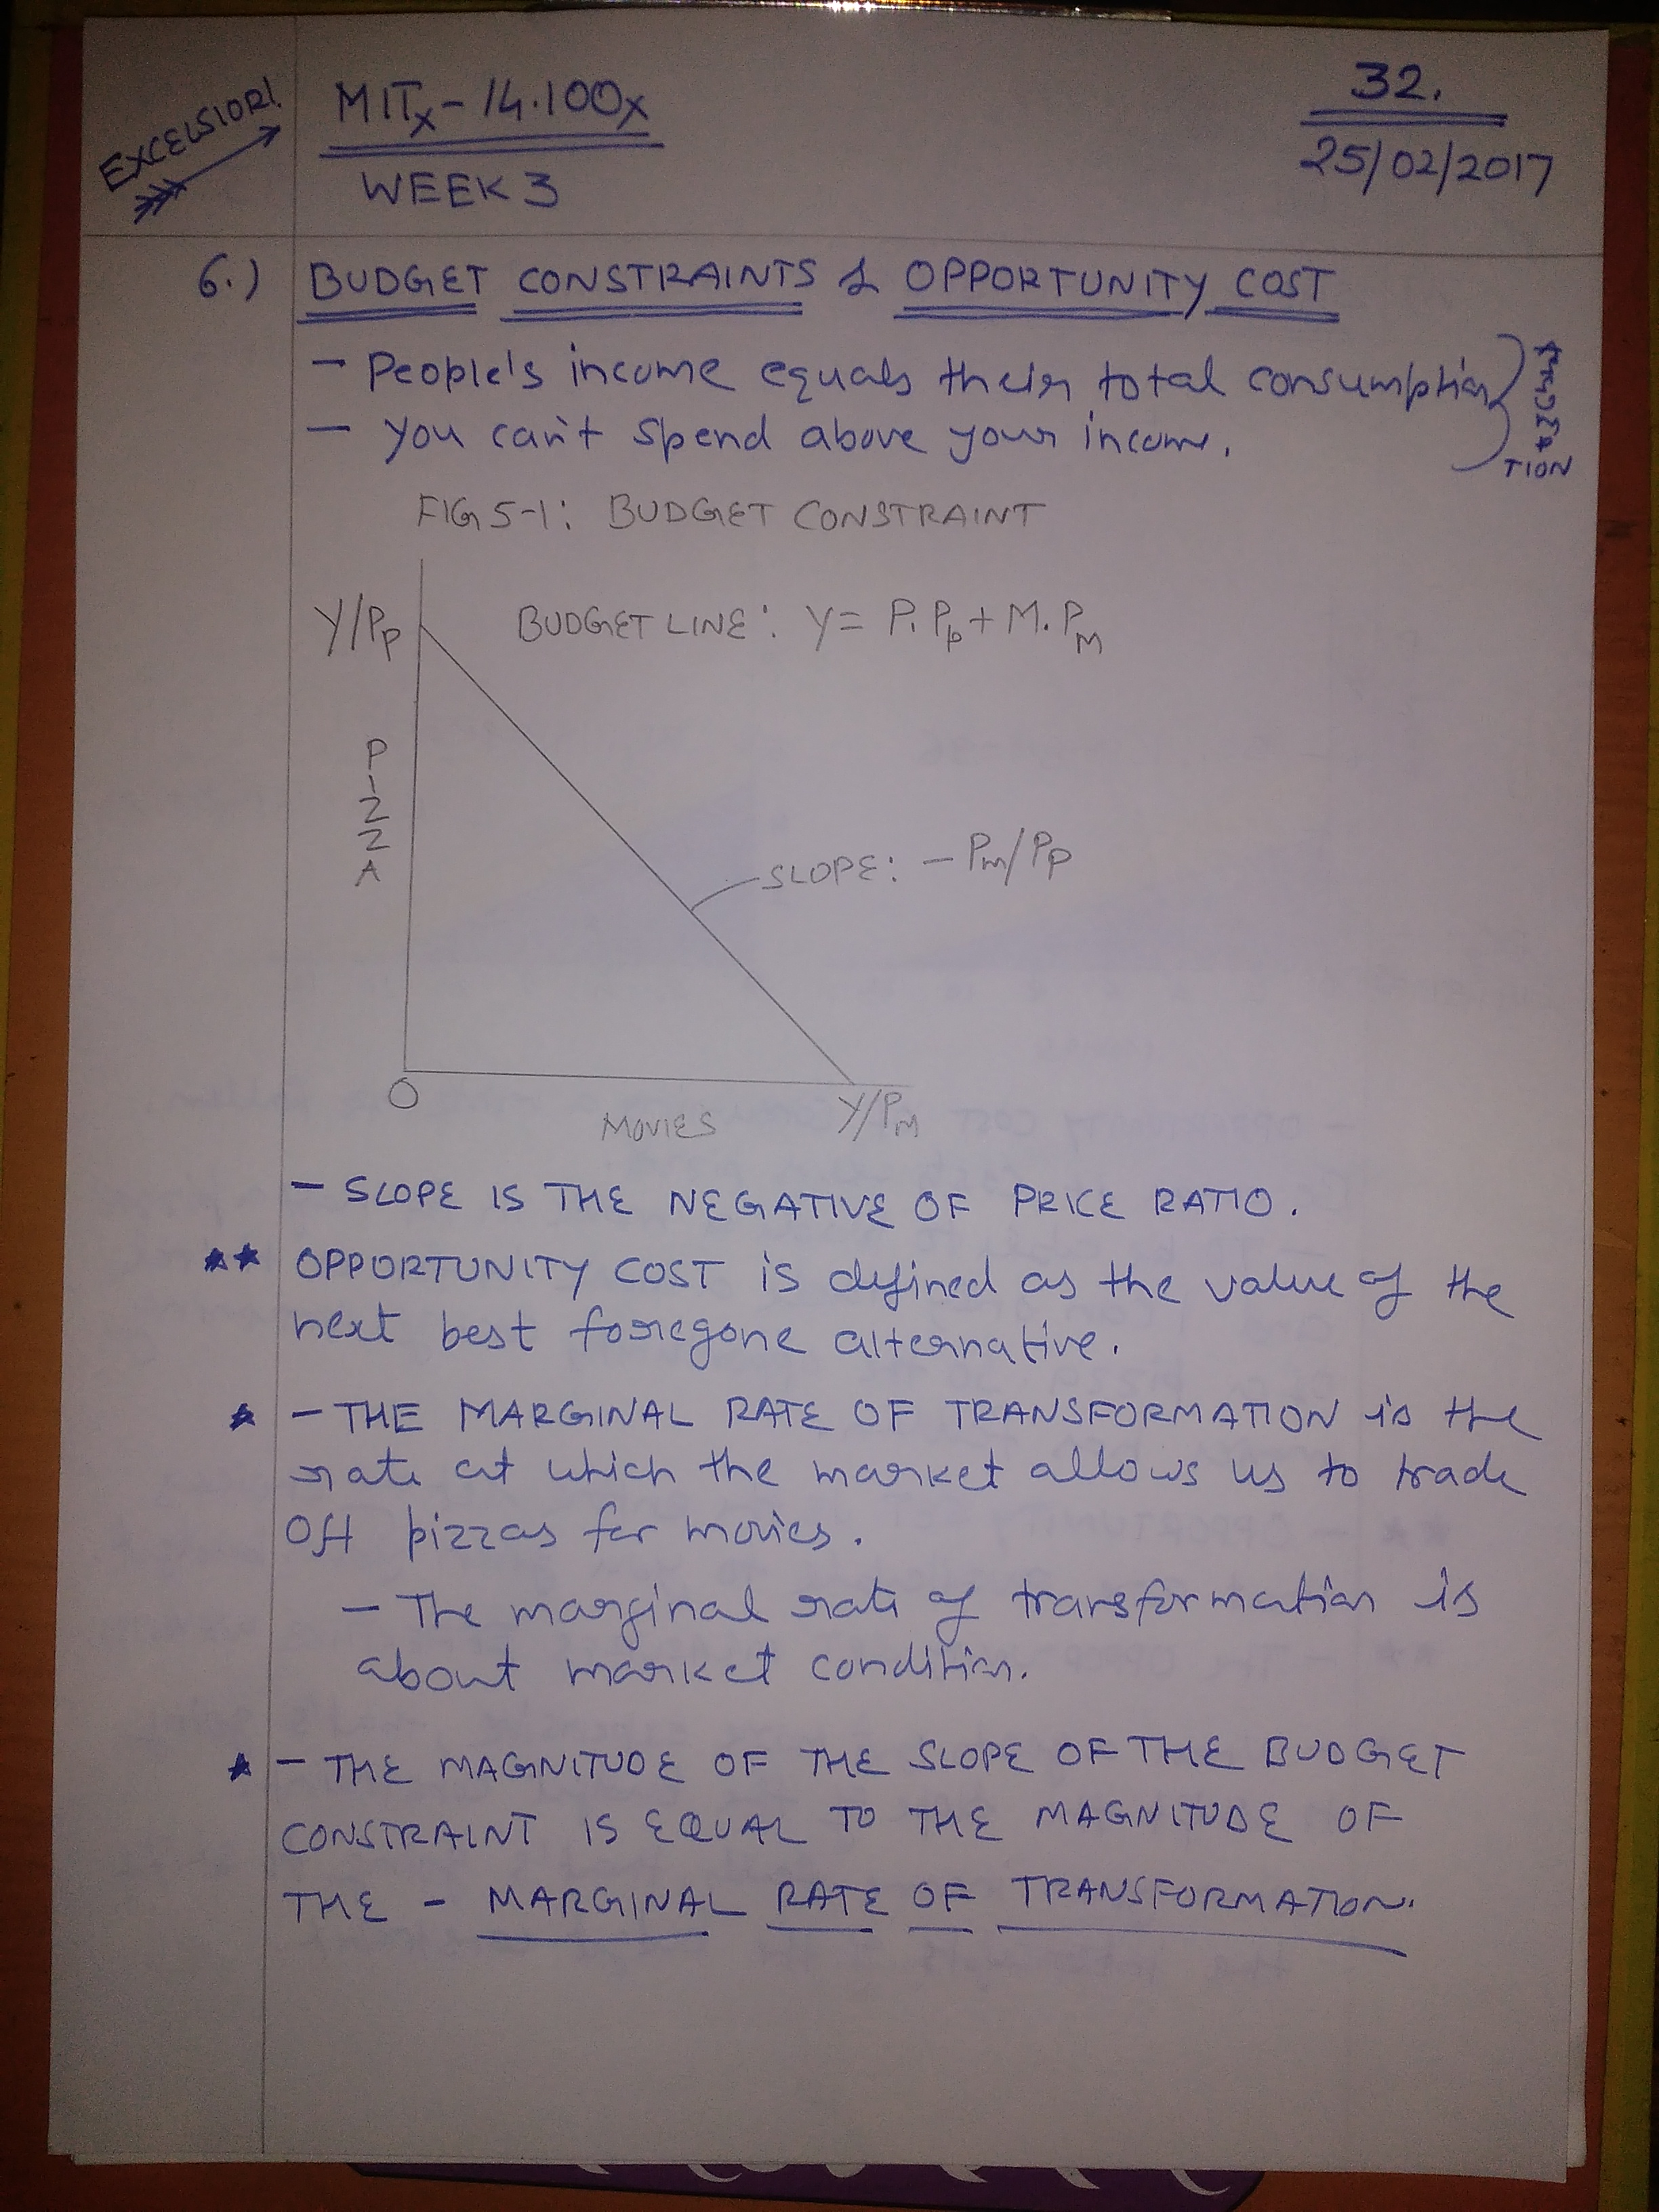 EXCELSIOR!
MITx - 14.100x
WEEK 3
32.
25/02/2017
6.) BUDGET CONSTRAINTS & OPPORTUNITY COST
- People's income equals their total consumption
- You can't spend above your income.
TION
FIG 5-1: BUDGET CONSTRAINT
Y/Pp
BUDGET LINE: Y = P.Pp + M.PM
PIZZA
SLOPE: - Pm/Pp
O
MOVIES
Y/PM
- SLOPE IS THE NEGATIVE OF PRICE RATIO.
★★ OPPORTUNITY COST is defined as the value of the
next best foregone alternative.
★ - THE MARGINAL RATE OF TRANSFORMATION is the
rate at which the market allows us to trade
off pizzas for movies.
- The marginal rate of transformation is
about market condition.
★ - THE MAGNITUDE OF THE SLOPE OF THE BUDGET
CONSTRAINT IS EQUAL TO THE MAGNITUDE OF
THE - MARGINAL RATE OF TRANSFORMATION.